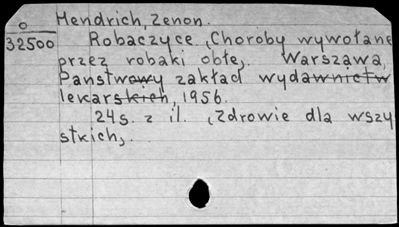 O
32500
Hendrich, Zenon.
Robaczyce (Choroby wywołane
przez robaki obłe). Warszawa,
Państwowy zakład wydawnictw
lekarskich, 1956.
24 s. z il. (Zdrowie dla wszy
stkich).